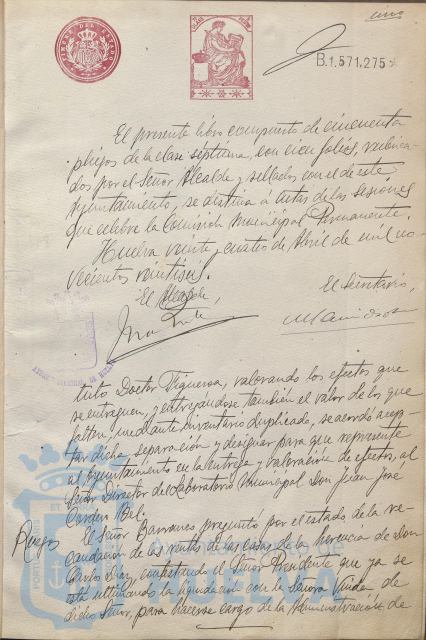 uno
TIMBRE DEL ESTADO
B.1,571,275
El presente libro compuesto de cincuenta
pliegos de la clase séptima, con cien folios, rubrica-
dos por el Señor Alcalde y sellados con el de este
Ayuntamiento, se destina a actas de las sesiones
que celebre la Comisión Municipal Permanente.
Huelva veinte y cuatro de Abril de mil no-
vecientos veintiseis.
El Alcalde,
El Secretario,
tuto Doctor Figueroa, valorando los efectos que
se entreguen, y entregándose también el valor de los que
falten, mediante inventario duplicado, se acordó acep-
tar dicha separación y designar para que represente
al Ayuntamiento en la entrega y valoración de efectos, al
Señor Director del Laboratorio Municipal Don Juan José
Cordero Bel.
Ruegos El Señor Barranes preguntó por el estado de la re-
caudación de las rentas de las casas de la herencia de Don
Carlos Díaz, contestando el Señor Presidente que ya se
está ultimando la liquidación con la Señora Viuda de
dicho Señor, para hacerse cargo de la Administración de